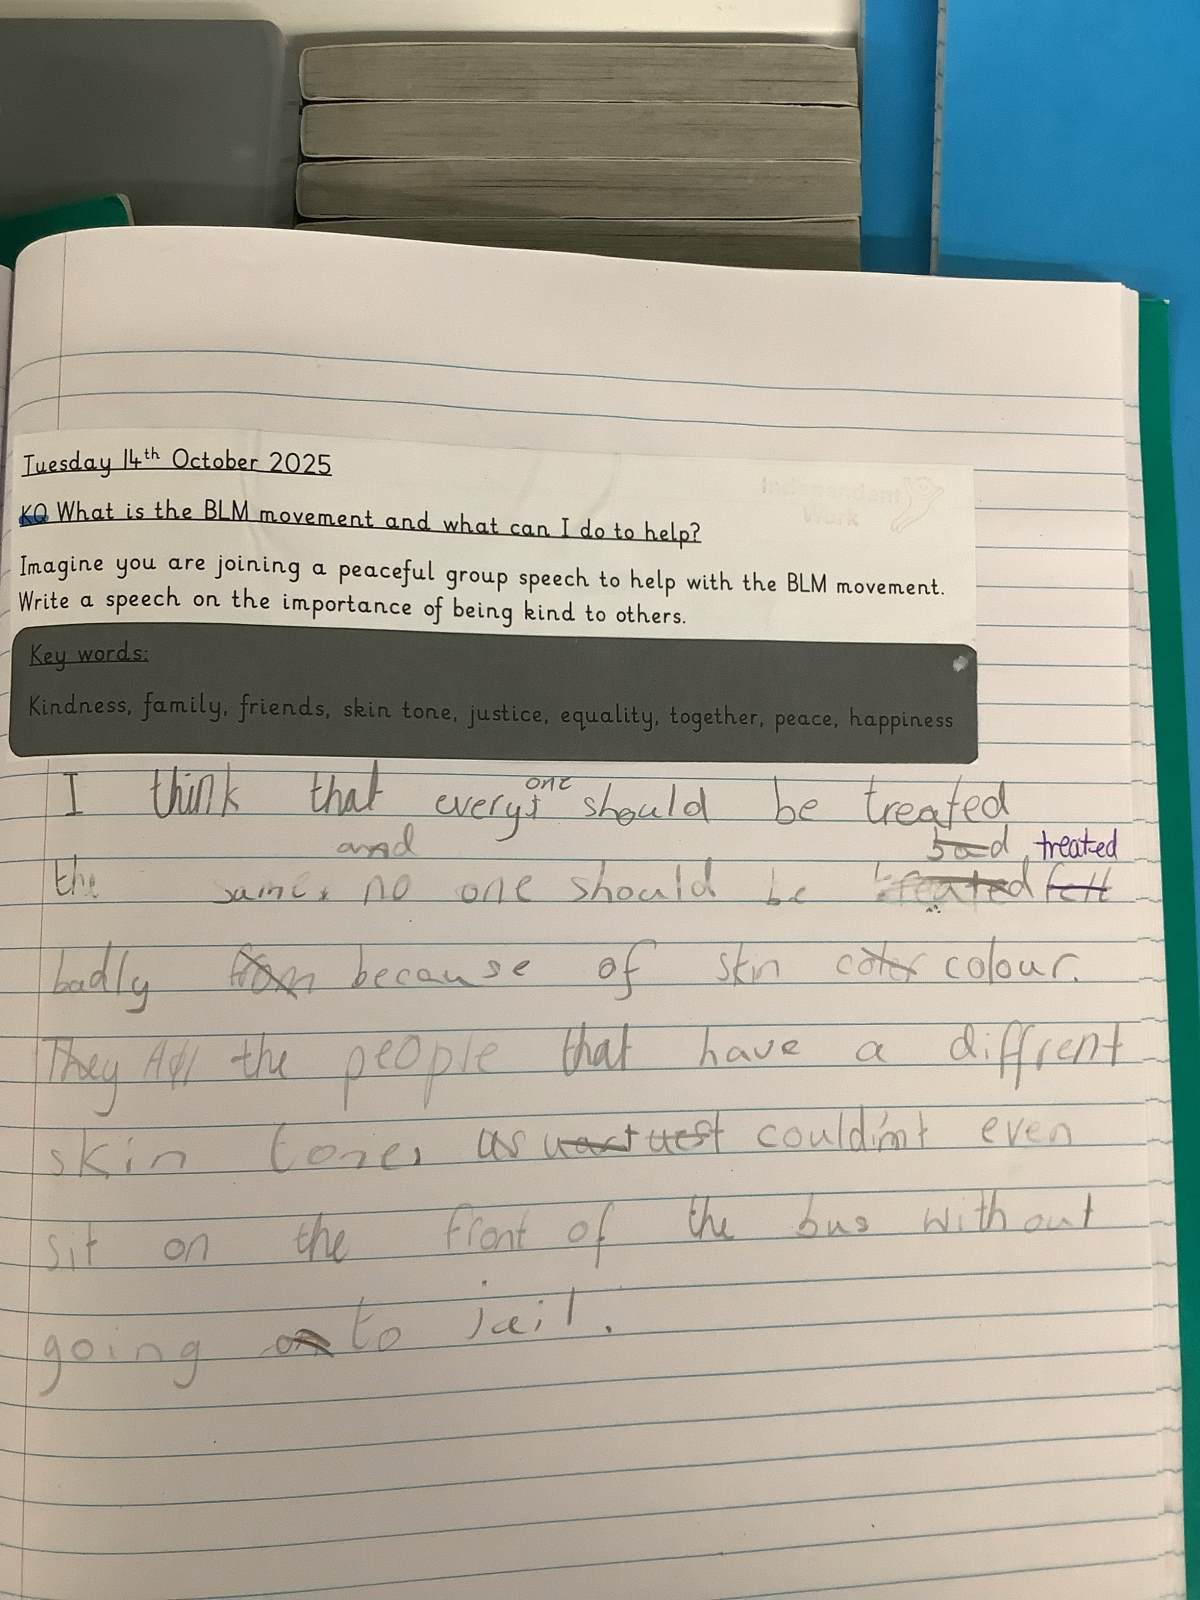 Independent
Work
Tuesday 14th October 2025
KQ What is the BLM movement and what can I do to help?
Imagine you are joining a peaceful group speech to help with the BLM movement.
Write a speech on the importance of being kind to others.
Key words:
Kindness, family, friends, skin tone, justice, equality, together, peace, happiness
I think that every one should be treated
and bad treated
the same, no one should be treated felt
badly from because of skin color colour.
They All the people that have a diffrent
skin tone, us couldin't even
sit on the front of the bus without
going on to jail.